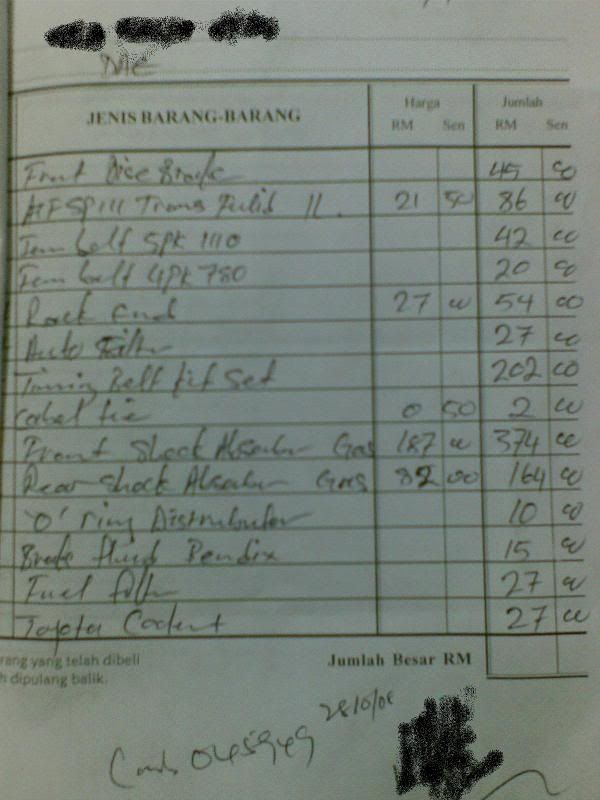 JENIS BARANG-BARANG Harga Jumlah
RM Sen RM Sen
Front Disc Brake 45 00
ATF SP III Trans Fluid 1L. 21 50 86 00
Fan belt 5pk 1110 42 00
Fan belt 4pk 780 20 00
Rack End 27 00 54 00
Auto Filter 27 00
Timing Belt kit set 202 00
Cabel tie 0 50 2 00
Front Shock Absorber Gas 187 00 374 00
Rear Shock Absorber Gas 82 00 164 00
'O' ring Distributor 10 00
Brake fluid Bendix 15 00
Fuel filter 27 00
Toyota Coolent 27 00
rang yang telah dibeli Jumlah Besar RM
h dipulang balik.
28/10/08
045949